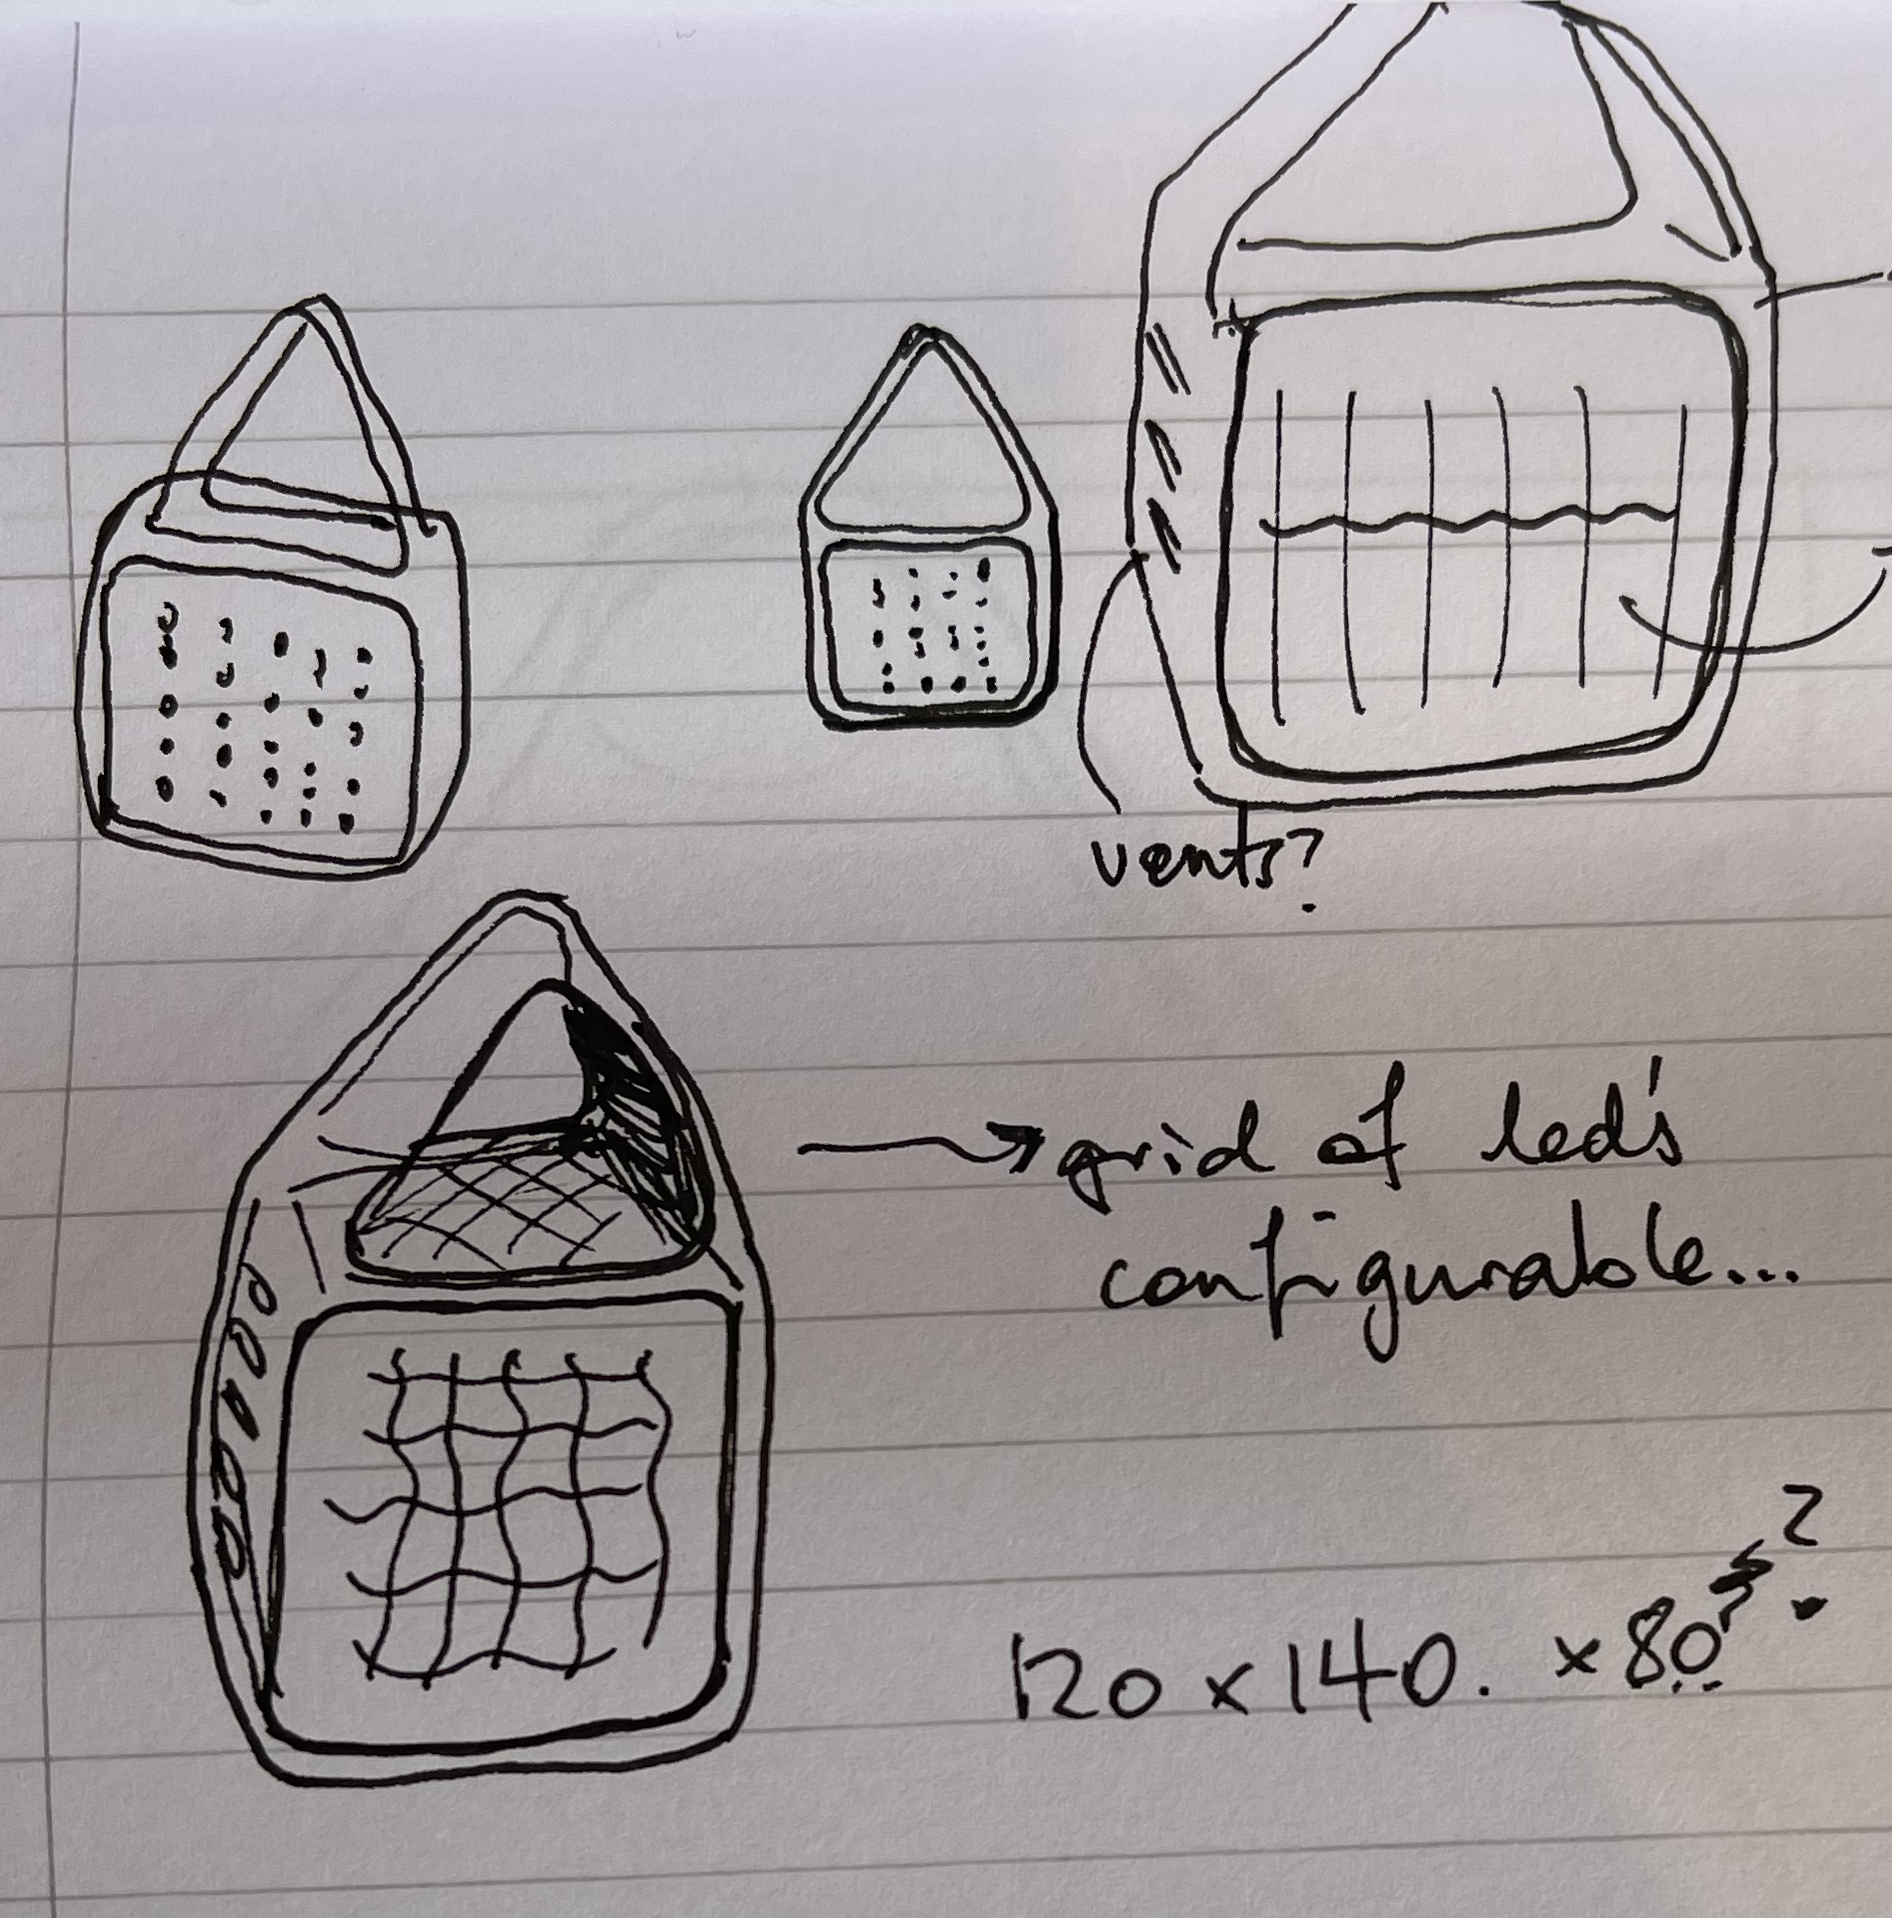 vents?
grid of led's
configurable...
120 x 140. x 80?